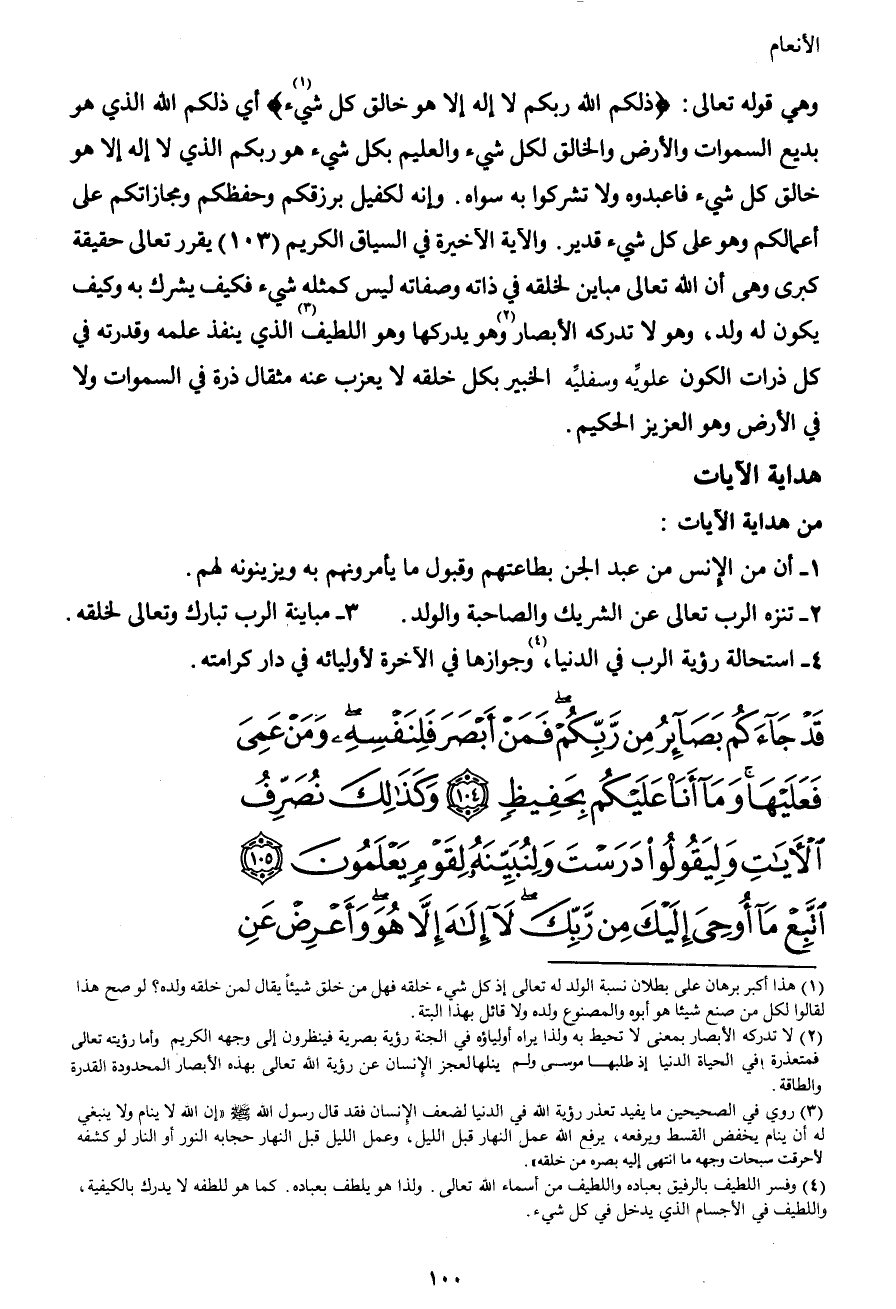 الأنعام
وهي قوله تعالى: ﴿ذلكم الله ربكم لا إله إلا هو خالق كل شيء﴾(١) أي ذلكم الله الذي هو
بديع السموات والأرض والخالق لكل شيء والعليم بكل شيء هو ربكم الذي لا إله إلا هو
خالق كل شيء فاعبدوه ولا تشركوا به سواه. وإنه لكفيل برزقكم وحفظكم ومجازاتكم على
أعمالكم وهو على كل شيء قدير. والآية الأخيرة في السياق الكريم (١٠٣) يقرر تعالى حقيقة
كبرى وهى أن الله تعالى مباين لخلقه في ذاته وصفاته ليس كمثله شيء فكيف يشرك به وكيف
يكون له ولد، وهو لا تدركه الأبصار(٢) وهو يدركها وهو اللطيف(٣) الذي ينفذ علمه وقدرته في
كل ذرات الكون علويِّه وسفليِّه الخبير بكل خلقه لا يعزب عنه مثقال ذرة في السموات ولا
في الأرض وهو العزيز الحكيم.
هداية الآيات
من هداية الآيات :
١- أن من الإنس من عبد الجن بطاعتهم وقبول ما يأمرونهم به ويزينونه لهم.
٢- تنزه الرب تعالى عن الشريك والصاحبة والولد. ٣- مباينة الرب تبارك وتعالى لخلقه.
٤- استحالة رؤية الرب في الدنيا،(٤) وجوازها في الآخرة لأوليائه في دار كرامته.
قَدْ جَآءَكُم بَصَآئِرُ مِن رَّبِّكُمْۖ فَمَنْ أَبْصَرَ فَلِنَفْسِهِۦۖ وَمَنْ عَمِىَ
فَعَلَيْهَاۚ وَمَآ أَنَا۠ عَلَيْكُم بِحَفِيظٍ ١٠٤ وَكَذَٰلِكَ نُصَرِّفُ
ٱلْأَيَٰتِ وَلِيَقُولُوا۟ دَرَسْتَ وَلِنُبَيِّنَهُۥ لِقَوْمٍ يَعْلَمُونَ ١٠٥
ٱتَّبِعْ مَآ أُوحِىَ إِلَيْكَ مِن رَّبِّكَۖ لَآ إِلَٰهَ إِلَّا هُوَۖ وَأَعْرِضْ عَنِ
(١) هذا أكبر برهان على بطلان نسبة الولد له تعالى إذ كل شيء خلقه فهل من خلق شيئاً يقال لمن خلقه ولده؟ لو صح هذا
لقالوا لكل من صنع شيئا هو أبوه والمصنوع ولده ولا قائل بهذا البتة.
(٢) لا تدركه الأبصار بمعنى لا تحيط به ولذا يراه أولياؤه في الجنة رؤية بصرية فينظرون إلى وجهه الكريم وأما رؤيته تعالى
فمتعذرة في الحياة الدنيا إذ طلبها موسى ولم ينلها لعجز الإنسان عن رؤية الله تعالى بهذه الأبصار المحدودة القدرة
والطاقة.
(٣) روي في الصحيحين ما يفيد تعذر رؤية الله في الدنيا لضعف الإنسان فقد قال رسول الله ﷺ «إن الله لا ينام ولا ينبغي
له أن ينام يخفض القسط ويرفعه، يرفع الله عمل النهار قبل الليل، وعمل الليل قبل النهار حجابه النور أو النار لو كشفه
لأحرقت سبحات وجهه ما انتهى إليه بصره من خلقه».
(٤) وفسر اللطيف بالرفيق بعباده واللطيف من أسماء الله تعالى. ولذا هو يلطف بعباده. كما هو للطفه لا يدرك بالكيفية،
واللطيف في الأجسام الذي يدخل في كل شيء.
١٠٠